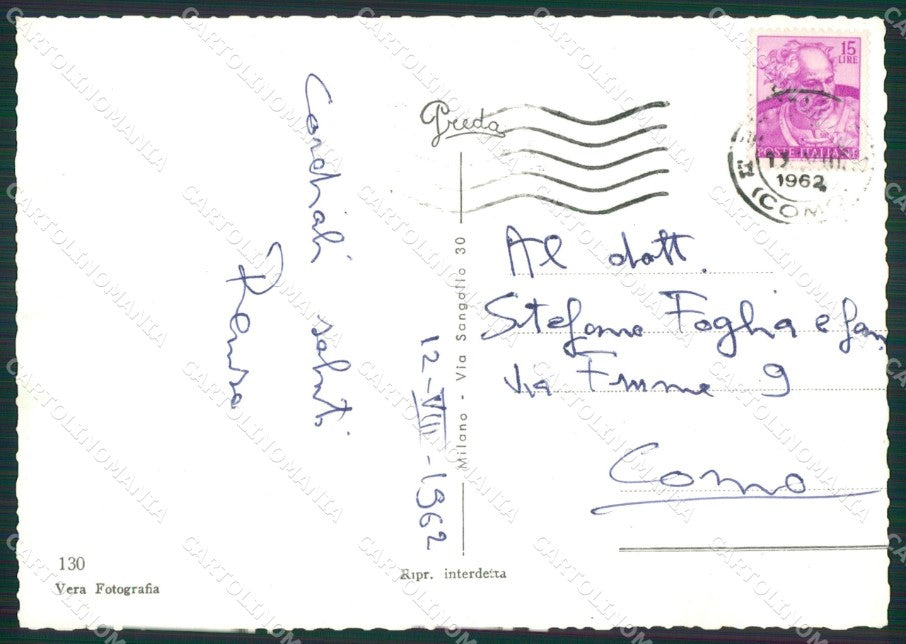 Cordiali saluti
Renzo
12-VIII-1962
Preda
Milano - Via Sangallo 30
15
LIRE
POSTE ITALIANE
12 VIII
1962
(COMO
Al dott.
Stefano Foglia e fam
Via Fiume 9
Como
130
Vera Fotografia
Ripr. interdetta
CARTOLINOMANIA